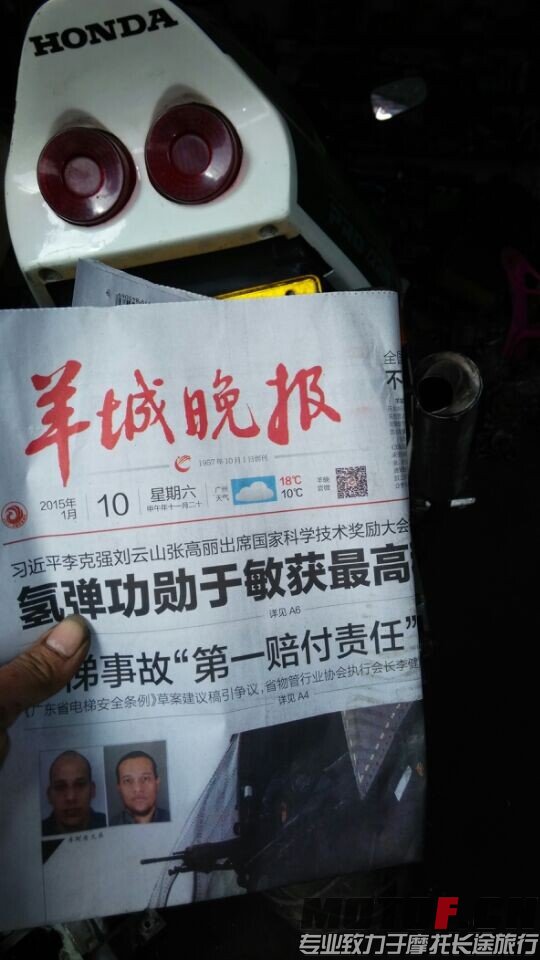 HONDA
羊城晚报
1957年10月1日创刊
2015年
1月
10
星期六
甲午年十一月二十
广州
天气
18℃
10℃
羊晚
官微
全国
不
习近平李克强刘云山张高丽出席国家科学技术奖励大会
氢弹功勋于敏获最高
详见 A6
梯事故“第一赔付责任”
《广东省电梯安全条例》草案建议稿引争议，省物管行业协会执行会长李健
详见 A4
MOTOF.CN
专业致力于摩托长途旅行